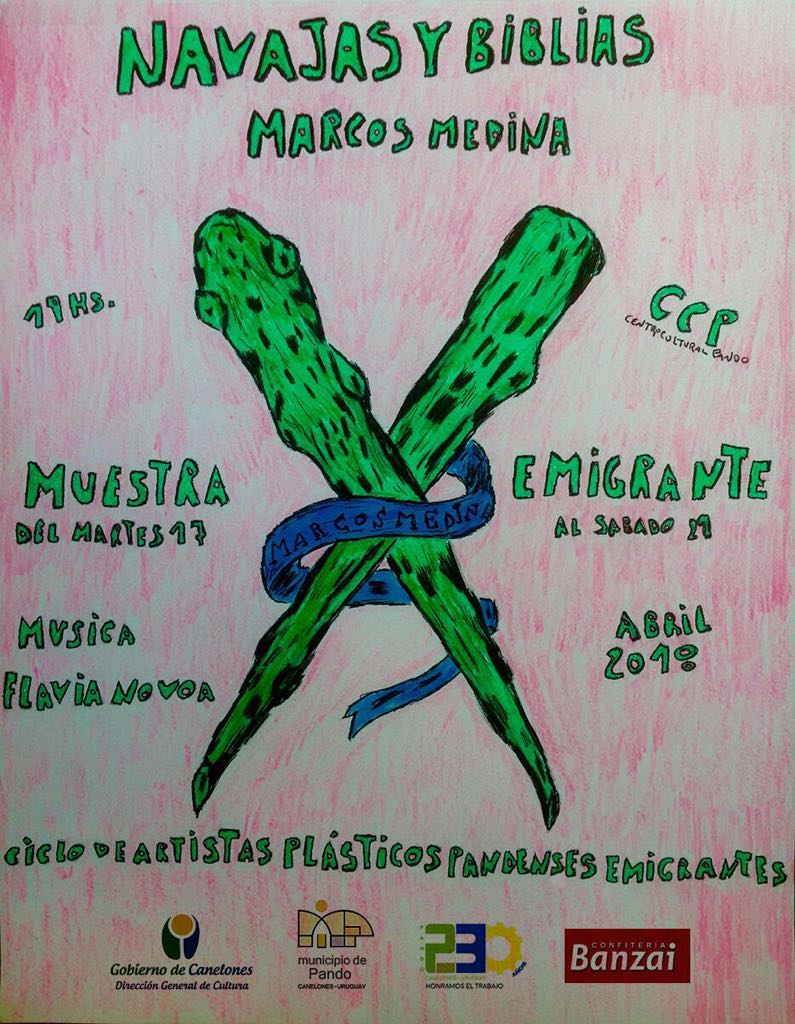 NAVAJAS Y BIBLIAS
MARCOS MEDINA
19 HS.
CCP
CENTRO CULTURAL PANDO
MUESTRA
EMIGRANTE
DEL MARTES 17
AL SABADO 21
MARCOS MEDINA
MUSICA
FLAVIA NOVOA
ABRIL
2018
CICLO DE ARTISTAS PLÁSTICOS PANDENSES EMIGRANTES
Gobierno de Canelones
Dirección General de Cultura
municipio de
Pando
CANELONES-URUGUAY
PANDO
230
AÑOS
CANELONES - URUGUAY
HONRAMOS EL TRABAJO
CONFITERÍA
Banzai